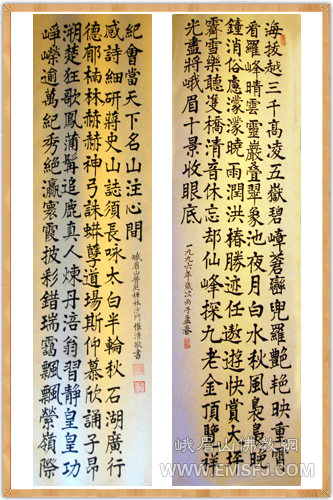 海拔越三千高凌五嶽碧嶂蒼巒兜羅艷艷映重霄
看羅峰晴雲靈巖疊翠象池夜月白水秋風裊裊晚
鐘消俗慮濛濛曉雨潤洪椿勝迹任遨遊快賞大坪
霽雪樂聽雙橋清音休忘却仙峰探九老金頂睹祥
光盡將峨眉十景收眼底
一九九六年歲次丙子孟春
崢嶸逾萬紀秀絕瀛寰霞披彩錯瑞靄飄飄縈嶺際
溯楚狂歌鳳蒲髯追鹿真人煉丹涪翁習靜皇皇功
德郁楠林赫赫神弓誅蛛孽道場斯仰慕欣誦子昂
感詩細研蔣史山誌須長咏太白半輪秋石湖廣行
紀會當天下名山注心間
峨眉山禪林沙門惟清敬書
峨眉山佛教網
WWW.EMSFJ.COM